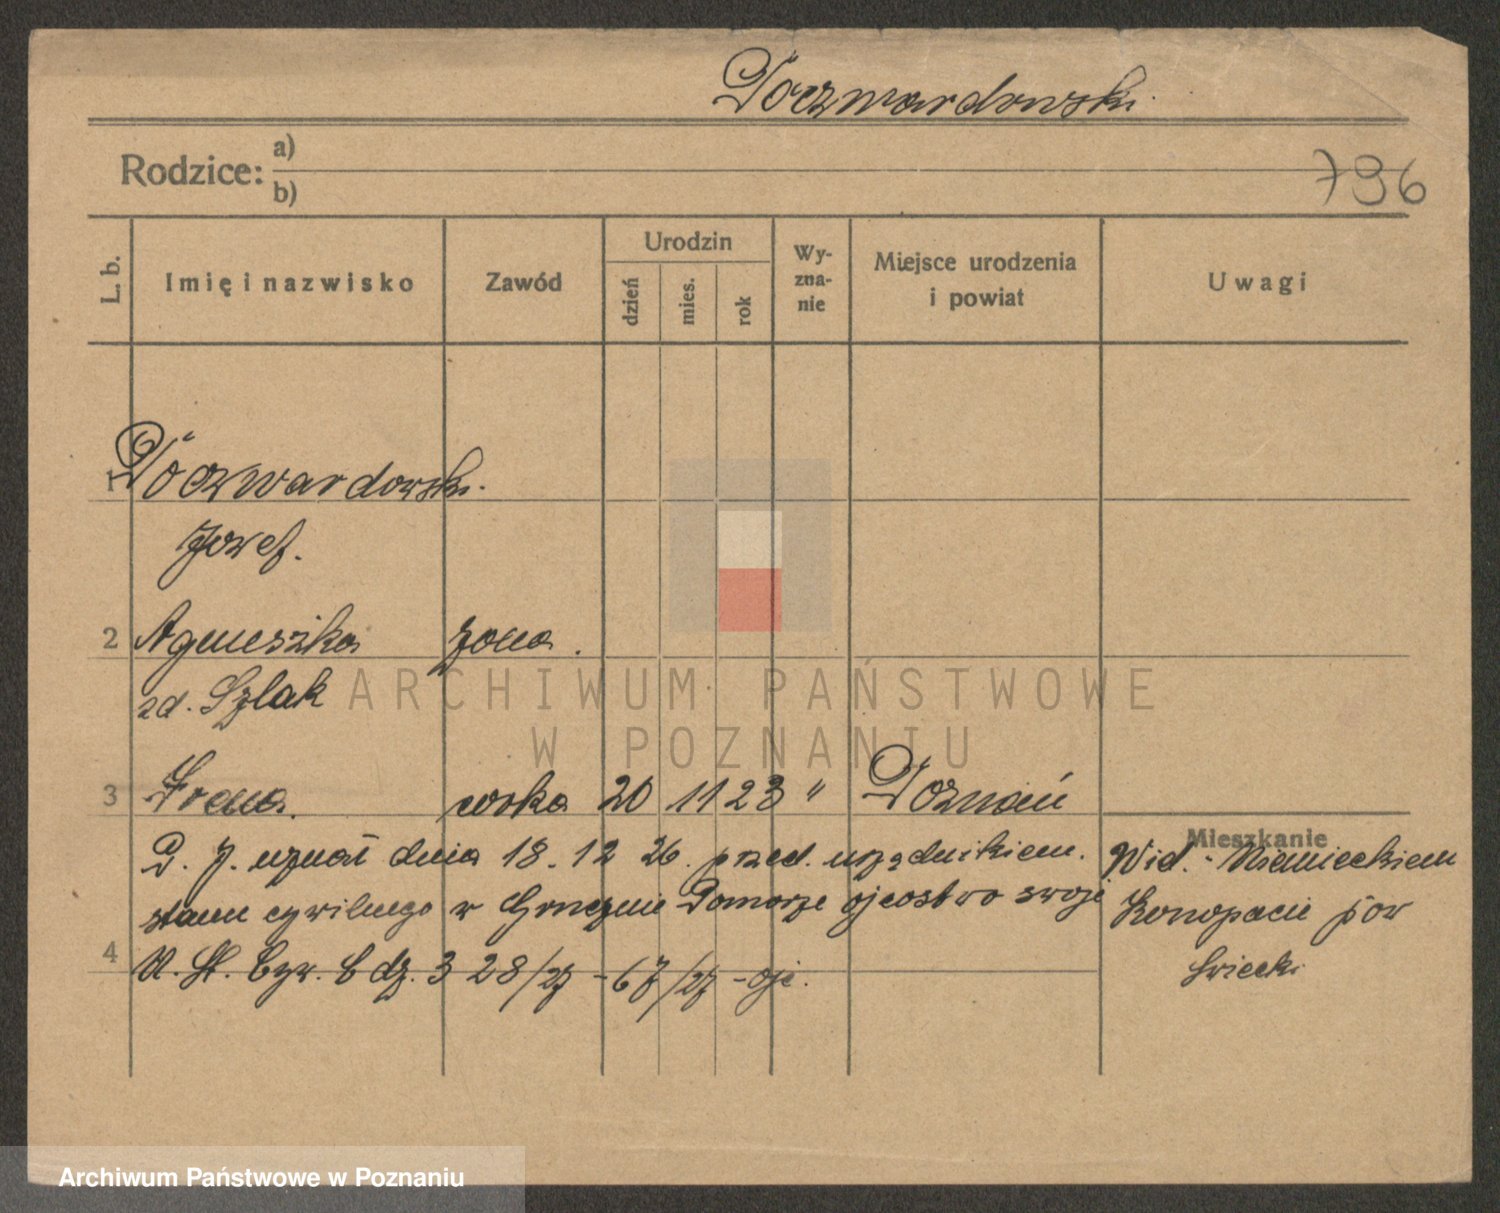 Poczwardowski.
Rodzice: a)
b)
796
L. b.
Imię i nazwisko
Zawód
Urodzin
dzień
mies.
rok
Wy-
zna-
nie
Miejsce urodzenia
i powiat
Uwagi
1 Poczwardowski.
Józef.
2 Agnieszka żona.
zd. Szlak
ARCHIWUM PAŃSTWOWE
W POZNANIU
3 Irena. córka 20 11 23 " Poznań
Mieszkanie
P. J. uznał dnia 18. 12 26. przed. urzędnikiem.
stanu cywilnego w Grucznie Pomorze ojcostwo swoje
4 U. St. Cyw. 6 dz. 3 28/27 - 67/27 - oje.
Wid. Niemieckiem
Konopacie pow
Świecki
Archiwum Państwowe w Poznaniu